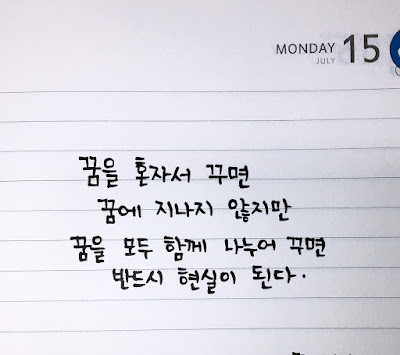 MONDAY 15
JULY
꿈을 혼자서 꾸면
꿈에 지나지 않지만
꿈을 모두 함께 나누어 꾸면
반드시 현실이 된다.